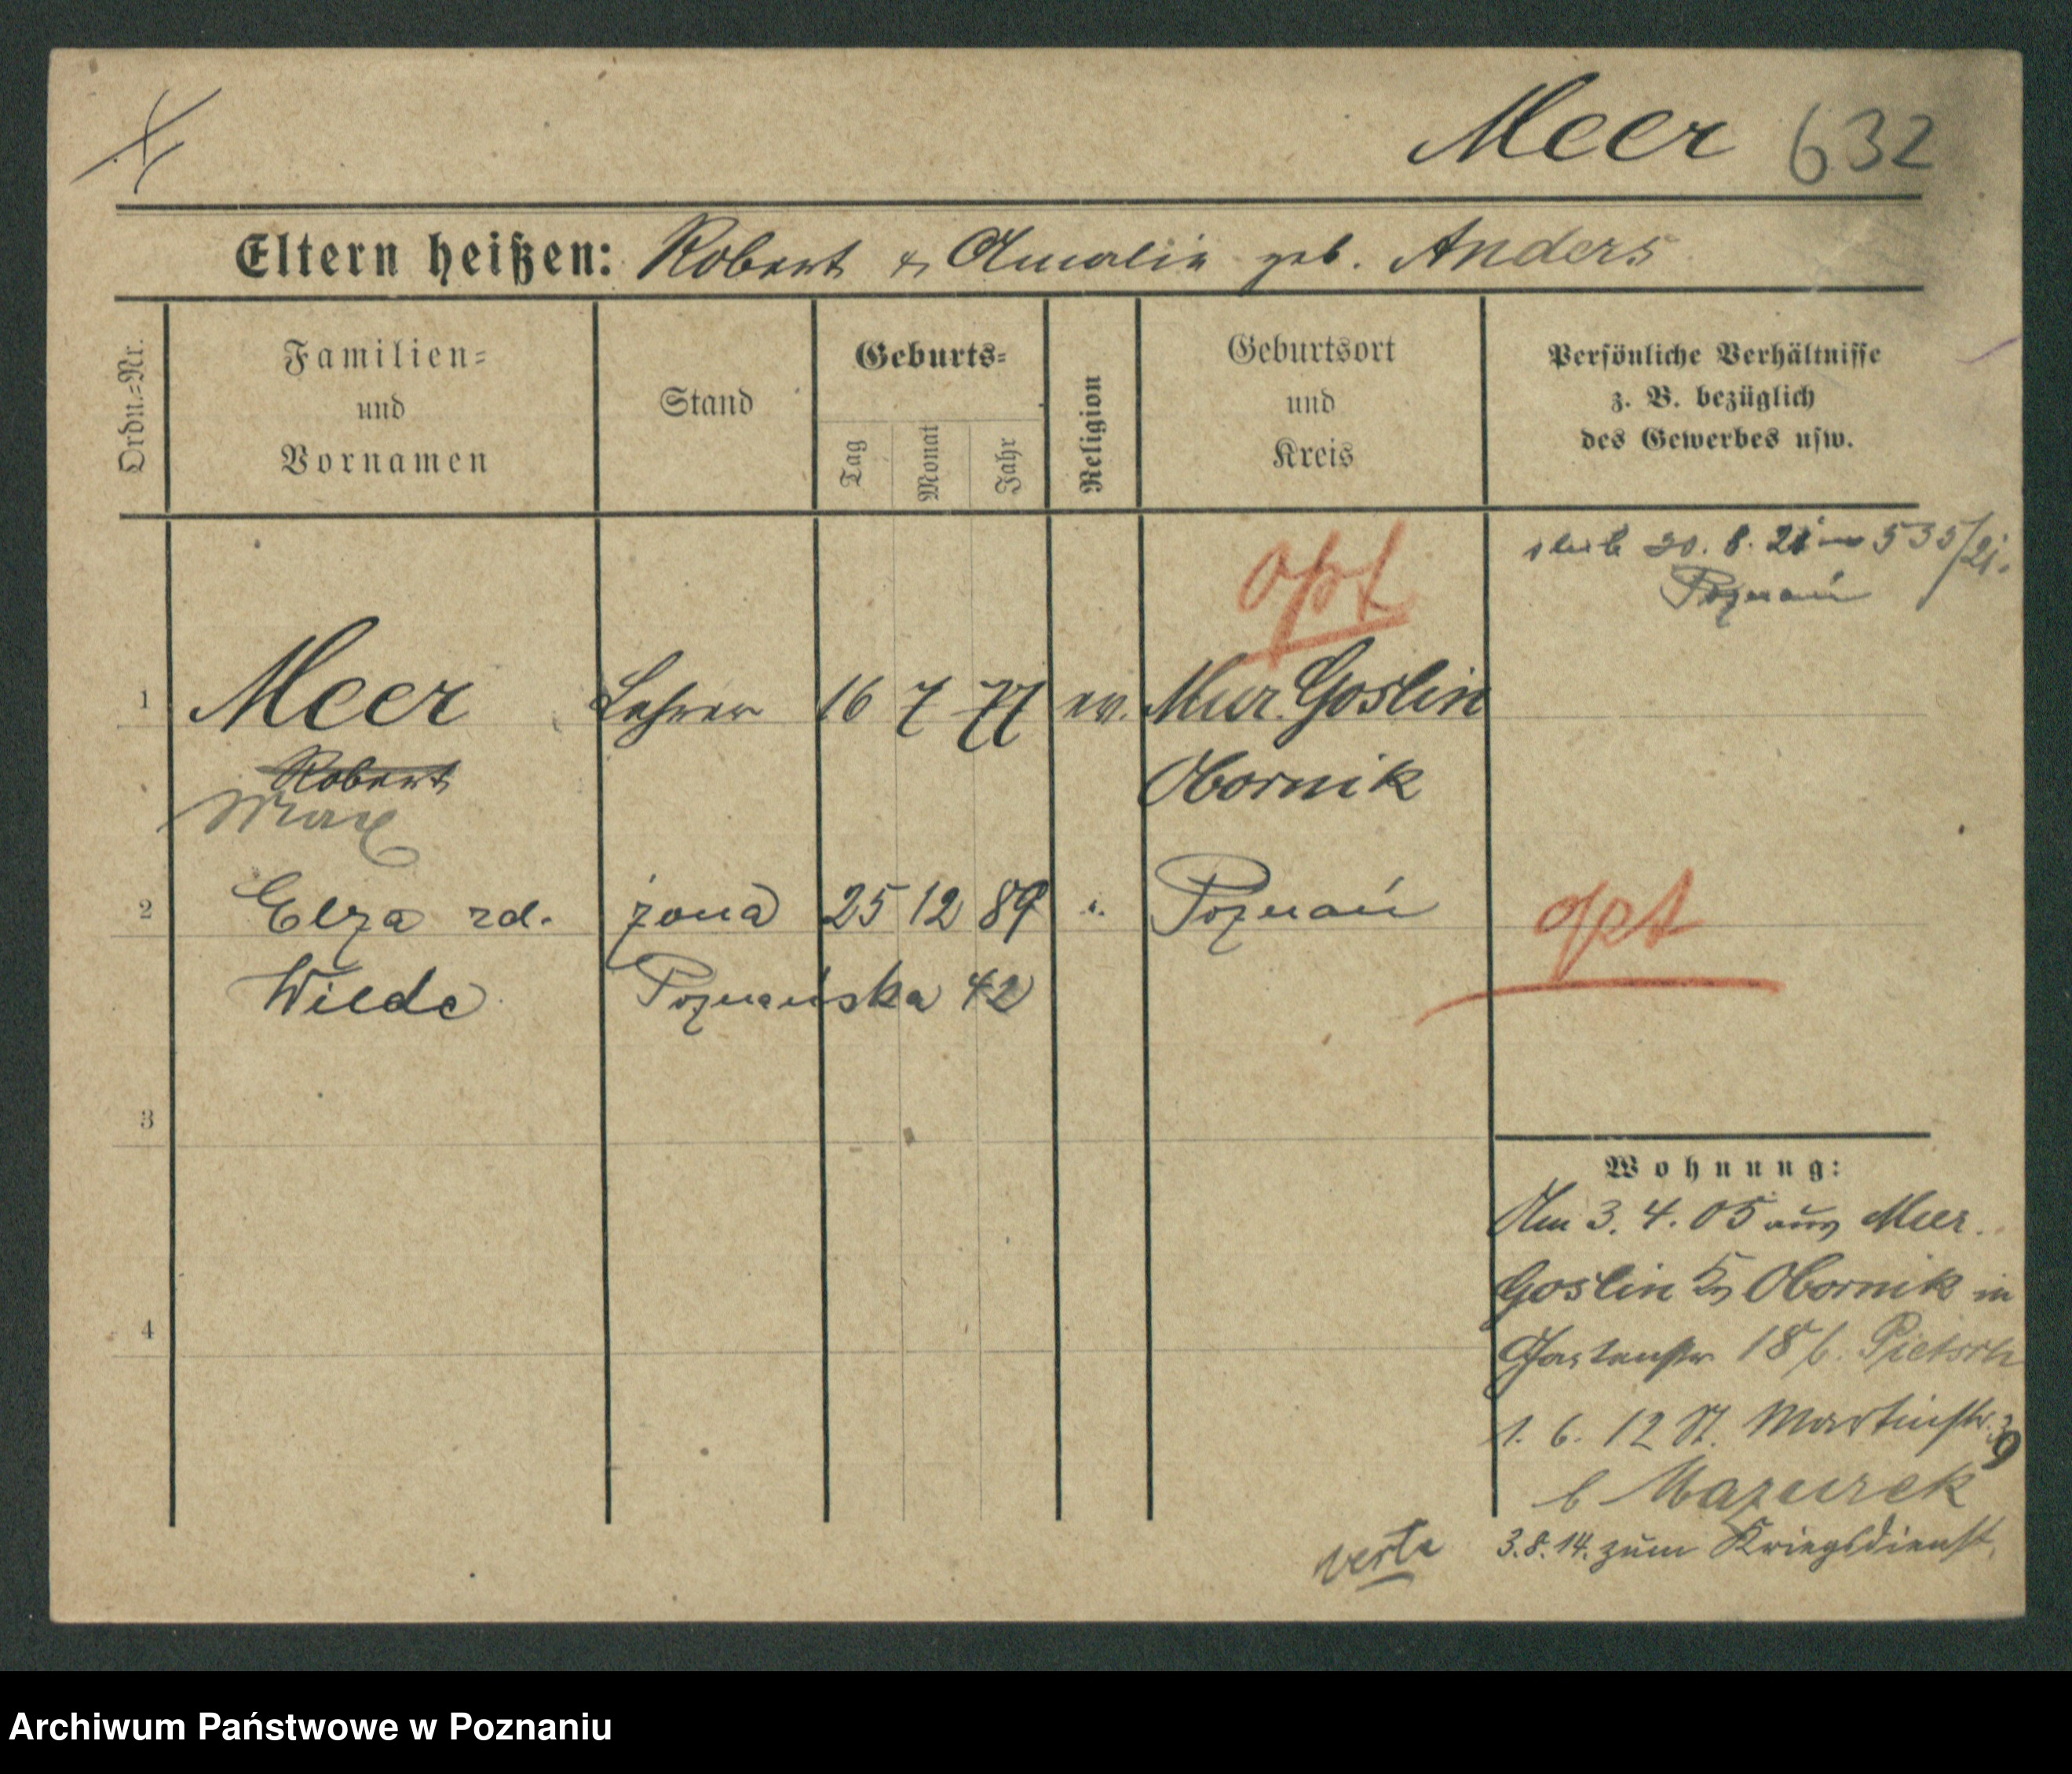 Meer 632
Eltern heißen: Robert & Amalie geb. Anders
Ordn.=Nr.
Familien=
und
Vornamen
Stand
Geburts=
Tag
Monat
Jahr
Religion
Geburtsort
und
Kreis
Persönliche Verhältnisse
z. B. bezüglich
des Gewerbes usw.
opt
ślub 20. 8. 21 535/21.
Poznań
1 Meer Lehrer 16 7 77 ev. Mur. Goslin
Robert Obornik
Max
2 Elza rd. żona 25 12 89 ". Poznań opt
Wilde Poznańska 42
3
Wohnung:
Am 3. 4. 05 aus Mur.
Goslin Kr Obornik in
4
Gartenstr 18 b. Pietsch
1. 6. 12 St. Martinstr. 39
b Mazurek
3.8.14. zum Kriegsdienst.
verte
Archiwum Państwowe w Poznaniu